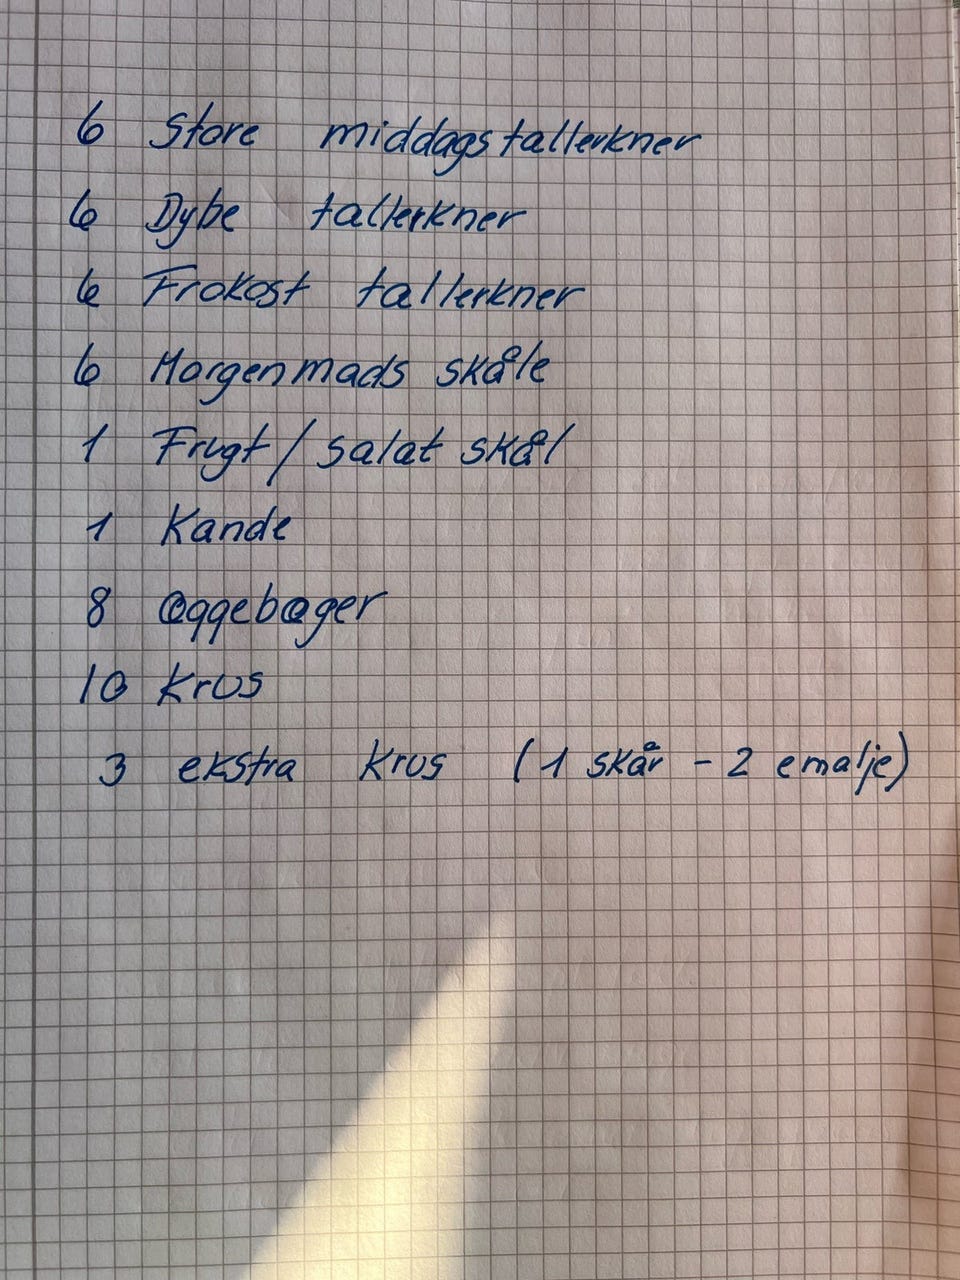 6 Store middagstallerkner
6 Dybe tallerkner
6 Frokost tallerkner
6 Morgenmads skåle
1 Frugt / salat skål
1 Kande
8 æggebæger
10 krus
3 ekstra krus (1 skår - 2 emalje)